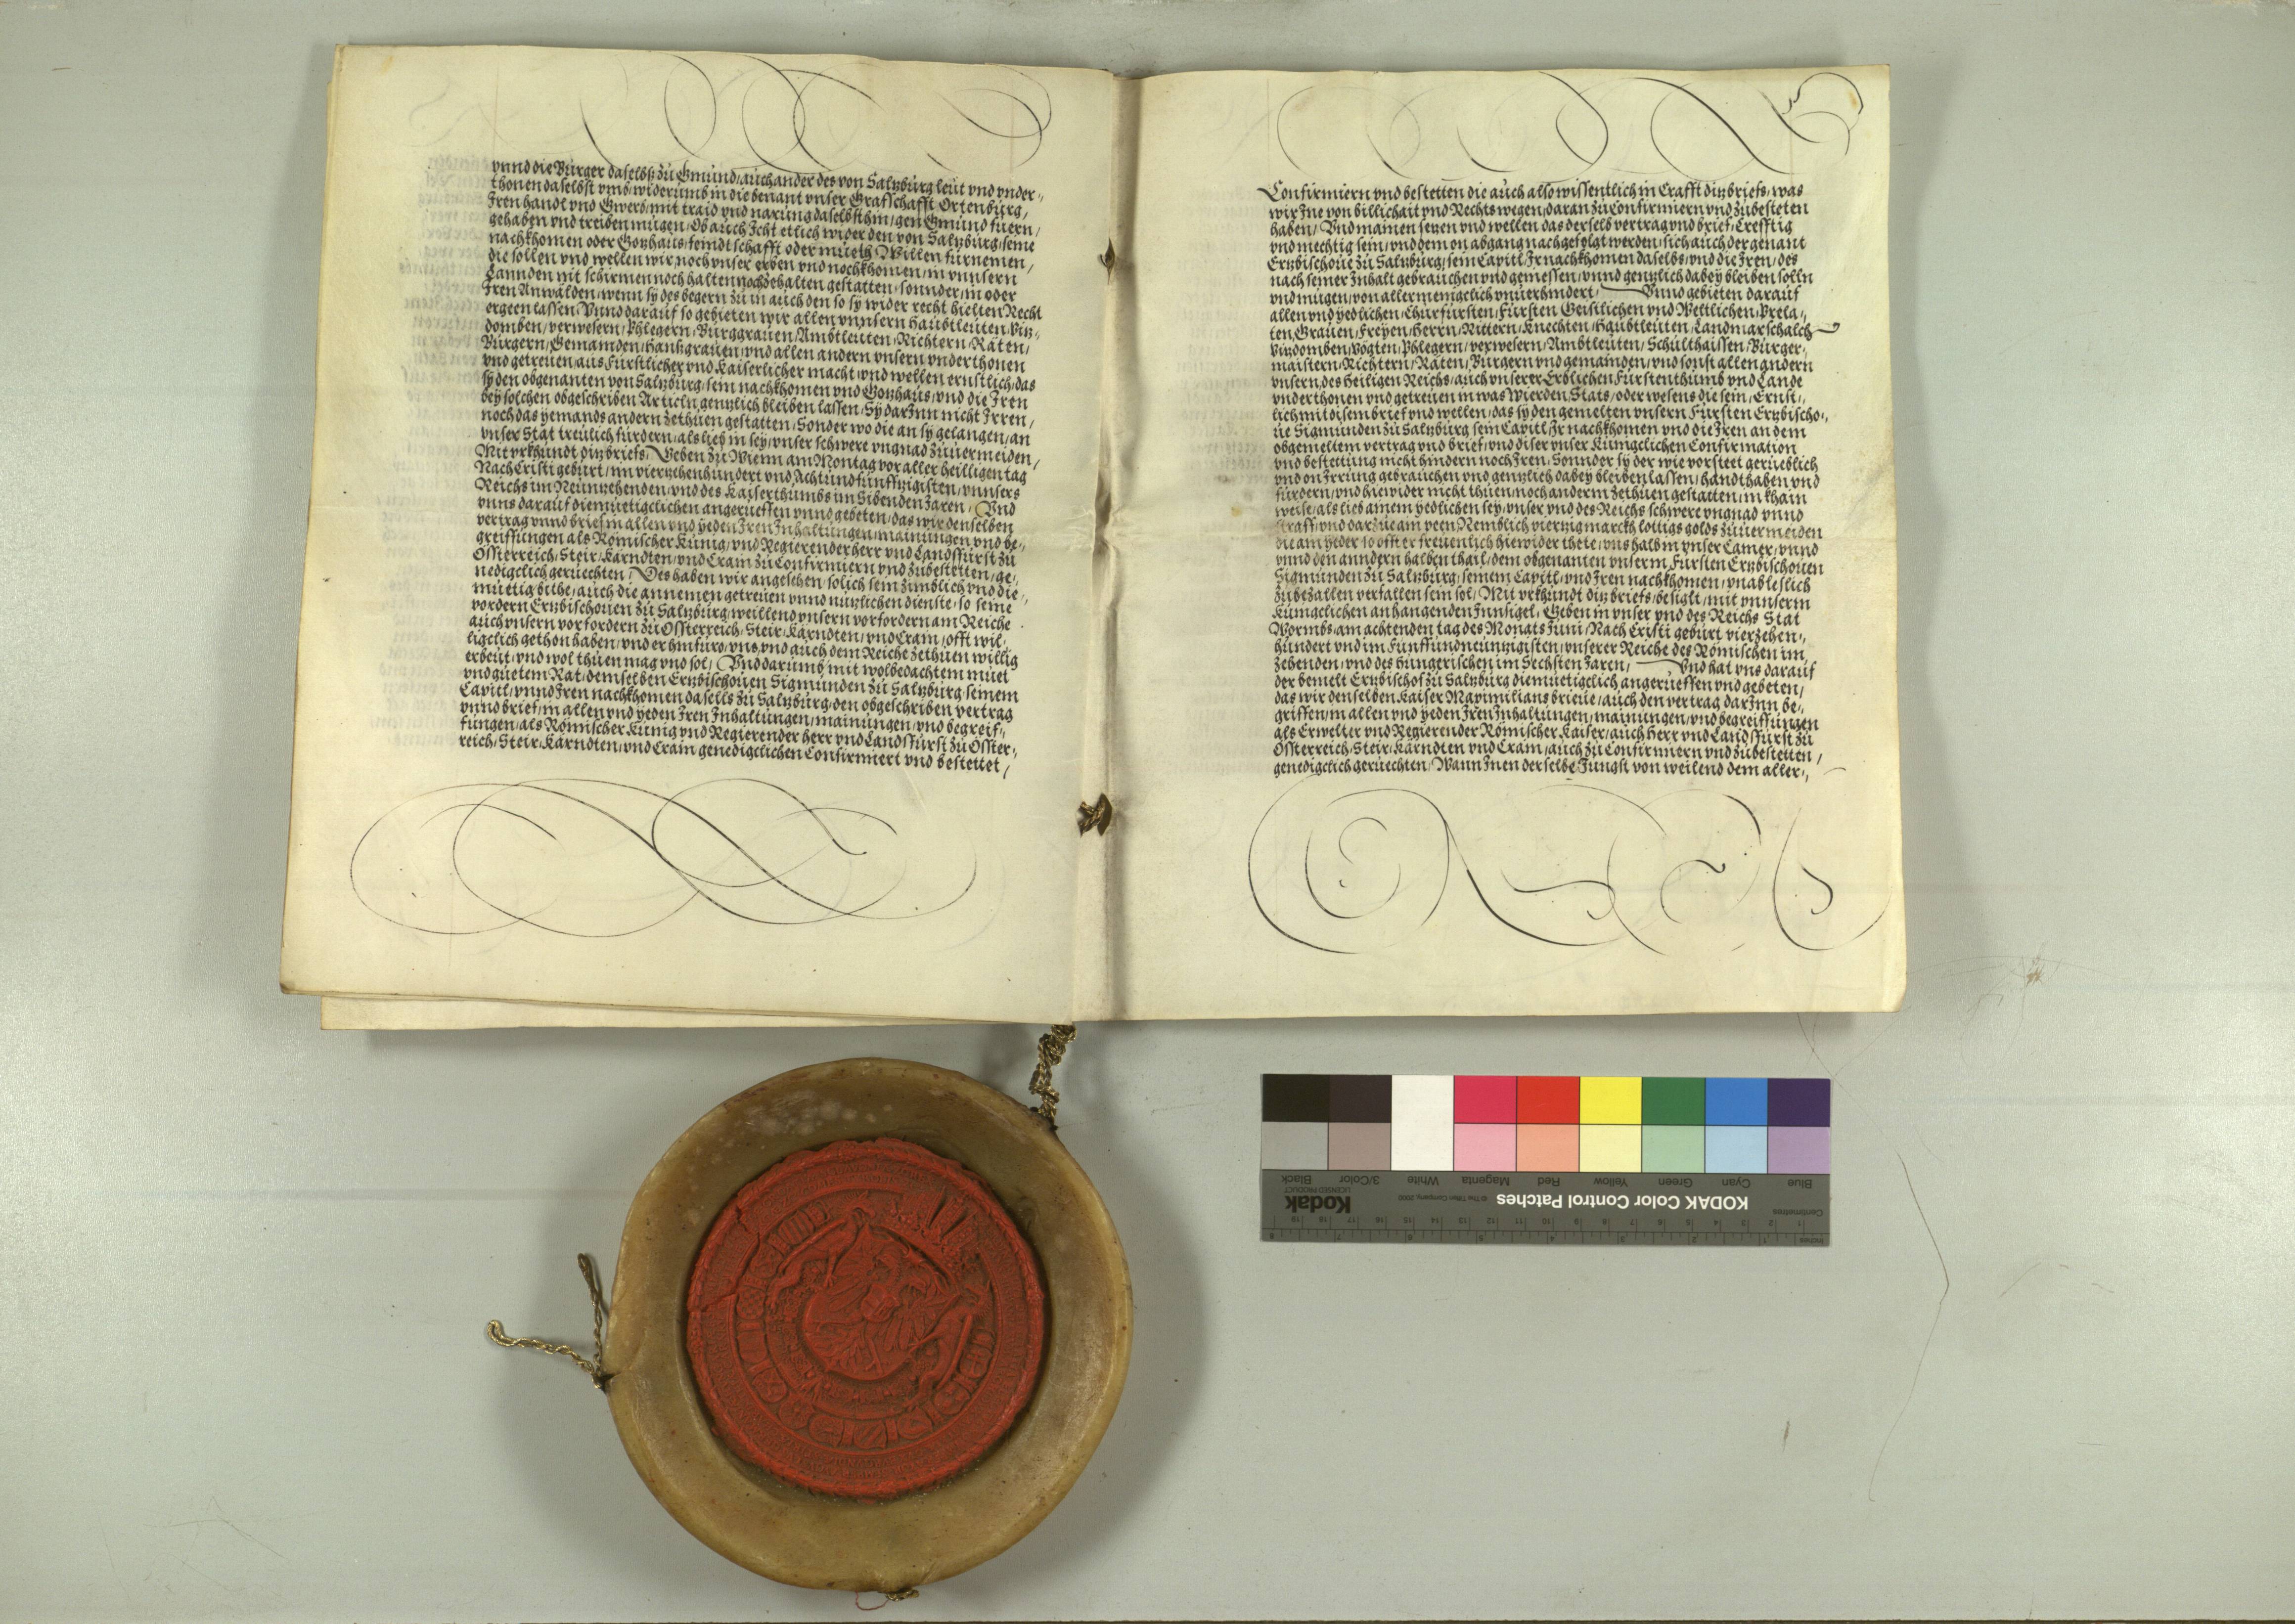 vnnd die Bürger daselbß zü Gmünd/auch ander des von Saltzbürg leüt vnd vnder-,
thonen daselbst vmb/widerümb in die benant vnser Grafschafft Ortenbürg,
Iren handl vnd Gwerb/mit traid vnd narüng daselbsthin/gen Gmünd füern/
gehaben vnd treiben mügen/Ob aüch Icht etlich wider den von Saltzbürg/seine
nachkhomen oder Gotzhaüs/feindtschafft oder müetz Willen fürnemen,
die sollen vnd wellen wir/noch vnser erben vnd nochkhomen/in vnnsern
Lannden nit schirmen noch halten/noch zehalten gestatten/sonnder/in oder
Iren Anwälden/wenn sy des begern zü in aüch den so sy wider recht hielten Recht
ergeen lassen/Vnnd daraüf so gebieten wir allen vnnsern Haübtleüten/Vitz-,
domben/verwesern/Phlegern/Bürggraüen/Ambtleüten/Richtern/Räten/
Bürgern/Gemainden/hanßgraüen/vnd allen andern vnsern vnderthonen
vnd getreüen/aüs Fürstlicher vnd Kaiserlicher macht/vnd wellen ernstlich/das
sy den obgenanten von Saltzbürg/sein nachkhomen vnd Gotzhaüs/vnd die Iren
bey solchen obgeschriben Articln/gentzlich bleiben lassen/Sy darInn nicht Irren,
noch das yemands andern zethüen gestatten/Sonder wo die an sy gelangen/an
vnser Stat treülich fürdern/als lieb in sey/vnser schwere vngnad züüermeiden/
Mit vrkhündt ditz briefs/Geben zü Wienn am Montag vor aller heilligen tag
Nach Cristi gebürt/im viertzehenhündert vnd Achtündfünfftzigisten/vnnsers
Reichs im Neüntzehenden/vnd des Kaiserthümbs im Sibenden Jaren/Vnd
vnns daraüf diemüetigclichen angerüeffen vnnd gebeten/das wir denselben
vertrag vnnd brief/in allen vnd yeden Iren Inhaltüngen/mainüngen vnd be-,
greiffüngen als Römischer Künig/vnd Regierender herr vnd Landsfürst zü
Össterreich/Steir/Kärndten/vnd Crain zü Confirmiern vnd zübestetten/ge-,
nedigclich gerüechten/Des haben wir angesehen/solich sein zimblich vnd die-,
müetig bithe/aüch die annemen getreüen vnnd nützlichen dienste/so seine
vordern Ertzbischouen zü Saltzbürg/weillend vnsern vorfordern am Reiche
aüch vnsern vorfordern zü Össterreich/Steir/Kärndten/vnd Crain/offt wil-
ligclich gethon haben/vnd er hinfüro/vns/vnd aüch dem Reiche zethüen willig
erbeüt/vnd wol thüen mag vnd sol/Vnd darümb/mit wolbedachtem müet
vnd güetem Rat/demselben Ertzbischouen Sigmünden zü Saltzbürg/seinem
Capitl/vnnd Iren nachkhomen daselbs zü Saltzbürg/den obgeschriben vertrag
vnnd brief/in allen vnd yeden Iren Inhaltüngen/mainüngen/vnd begreif-,
füngen/als Römischer Künig vnd Regierender herr vnd Landsfürst zü Öster-,
reich/Steir/Kärndten/vnd Crain genedigclichen Confirmiert vnd bestettet/
Confirmiern vnd bestetten die aüch also wissentlich in Crafft ditz briefs/was
wir Ine von billichait vnd Rechts wegen/daran zü Confirmiern vnd zübesteten
haben/Vnd mainen setzen vnd wellen das derselb vertrag vnd brief/Crefftig
vnd mechtig sein/vnd dem on abgang nachgefolgt werden/sich aüch der genant
Ertzbischoue zü Saltzbürg/sein Capitl/Ir nachkhomen daselbs/vnd die Iren/des
nach seiner Inhalt gebraüchen vnd geniessen/vnnd gentzlich dabey bleiben solln
vnd mügen/von allermenigclich vnüerhindert/Vnnd gebieten daraüf
allen vnd yedlichen/Chürfürsten/Fürsten Geistlichen vnd Weltlichen/Prela-,
ten/Graüen/Freyen/Herrn/Rittern/Knechten/Haübtleüten/Landmarschalch
Vitzdomben/Vögten/Phlegern/verwesern/Ambtleüten/Schülthaissen/Bürger-,
maistern/Richtern/Räten/Bürgern vnd gemainden/vnd sonst allen andern
vnsern/des Heiligen Reichs/aüch vnserer Erblichen Fürstenthümb vnd Lande
vnderthonen vnd getreüen in was Wierden/Stats/oder wesens die sein/Ernst-,
lich mit disem brief vnd wellen/das sy den gemelten vnsern Fürsten Ertzbischo-,
üe Sigmünden zü Saltzbürg sein Capitl Ir nachkhomen vnd die Iren an dem
obgemeltem vertrag vnd brief/vnd diser vnser Künigclichen Confirmation
vnd bestettüng nicht hindern noch Iren/Sonnder sy der wie vorsteet gerüeblich
vnd on Irrüng gebraüchen vnd gentzlich dabey bleiben lassen/handthaben vnd
fürdern/vnd hiewider nicht thüen/noch anderm zethüen gestatten/in khain
weise/als lieb ainem yedlichen sey/vnser vnd des Reichs schwere vngnad vnnd
straff/vnd darzüe ain peen/Nemblich viertzig marckh lottigs golds züüermeiden
die ain yeder so offt er freüenlich hiewider thete/vns halb in vnser Camer/vnnd
vnnd den anndern halben thail/dem obgenanten vnserm Fürsten Ertzbischouen
Sigmünden zü Saltzbürg/seinem Capitl/vnd Iren nachkhomen/vnableslich
zübezallen verfallen sein sol/Mit vrkhündt ditz briefs/besiglt/mit vnnserm
Künigclichen anhangenden Innsigel/Geben in vnser vnd des Reichs Stat
Wormbs/am achtenden tag des Monats Juni/Nach Cristi gebürt vierzehen-,
hündert vnd im Fünffündneüntzigisten/vnserer Reiche des Römischen im
zehenden/vnd des Hüngerischen im Sechsten Jaren/Vnd hat vns daraüf
der bemelt Ertzbischof zü Saltzbürg diemüetigclich angerüeffen vnd gebeten/
das wir denselben Kaiser Maximilians brieüe/aüch den vertrag darInn be-,
griffen/in allen vnd yeden Iren Inhaltüngen/mainüngen/vnd begreiffüngen
als Erwelter vnd Regierender Römischer Kaiser/aüch Herr vnd Landsfürst zü
Össterreich/Steir/Kärndten vnd Crain/aüch zü Confirmiern vnd zübestetten/
genedigclich gerüechten/Wann Inen derselbe Jüngst von weilend dem aller-,
KODAK Color Control Patches
Kodak
LICENSED PRODUCT
© The Tiffen Company, 2000
Blue Cyan Green Yellow Red Magenta White 3/Color Black
Centimetres
Inches